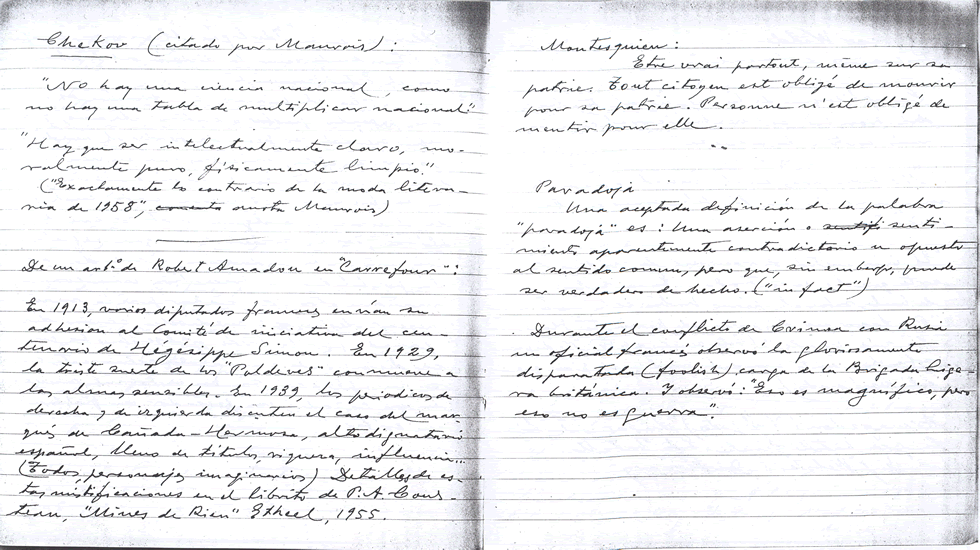 Chekov (citado por Maurois):
"No hay una ciencia nacional, como
no hay una tabla de multiplicar nacional"
"Hay que ser intelectualmente claro, mo-
ralmente puro, físicamente limpio."
("Exactamente lo contrario de la moda litera-
ria de 1958", anota Maurois)
De un arto. de Robert Amadou en "Carrefour":
En 1913, varios diputados franceses envían su
adhesion al Comité de iniciativa del cen-
tenario de Hégésippe Simon. En 1929,
la triste suerte de los "Poldeves" conmueve a
las almas sensibles. En 1939, los periodicos de
derecha y de izquierda discuten el caso del mar-
qués de Cañada-Hermosa, alto dignatario
español, lleno de títulos, riqueza, influencia...
(Todos, personajes imaginarios) Detalles de es-
tas mistificaciones en el librito de P.A. Cous-
teau, "Mines de Rien" Etheel, 1955.
Montesquieu:
Etre vrai partout, même sur sa
patrie. Tout citoyen est obligé de mourir
pour sa patrie. Personne n'est obligé de
mentir pour elle.
Paradoja
Una aceptada definición de la palabra
"paradoja" es: Una aserción o senti-
miento aparentemente contradictorio u opuesto
al sentido comun, pero que, sin embargo, puede
ser verdadero de hecho. ("in fact")
Durante el conflicto de Crimea con Rusia
un oficial francés observó la gloriosamente
disparatada (foolish) carga de la Brigada Lige-
ra británica. Y observó: "Eso es magnífico, pero
eso no es guerra".